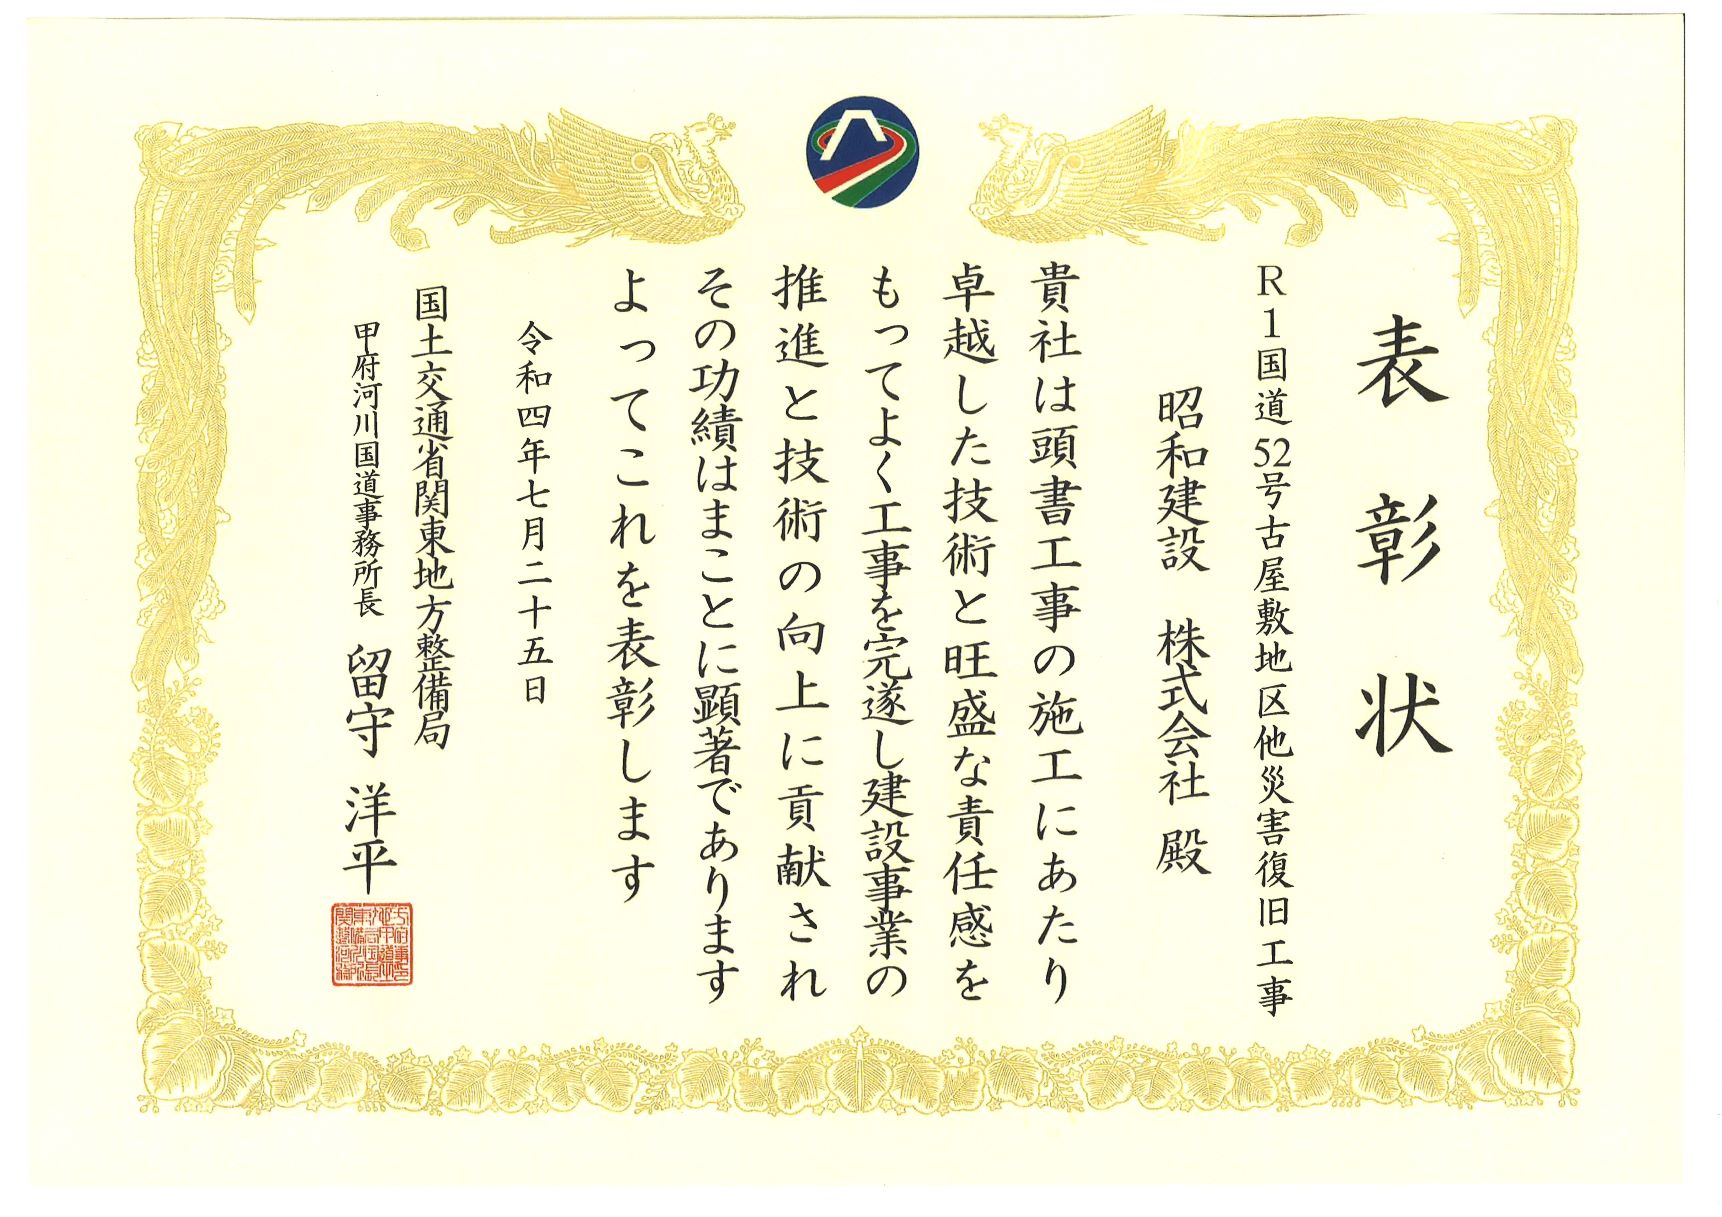 表彰状
R1国道52号古屋敷地区他災害復旧工事
昭和建設 株式会社 殿
貴社は頭書工事の施工にあたり
卓越した技術と旺盛な責任感を
もってよく工事を完遂し建設事業の
推進と技術の向上に貢献され
その功績はまことに顕著であります
よってこれを表彰します
令和四年七月二十五日
国土交通省関東地方整備局
甲府河川国道事務所長 留守 洋平